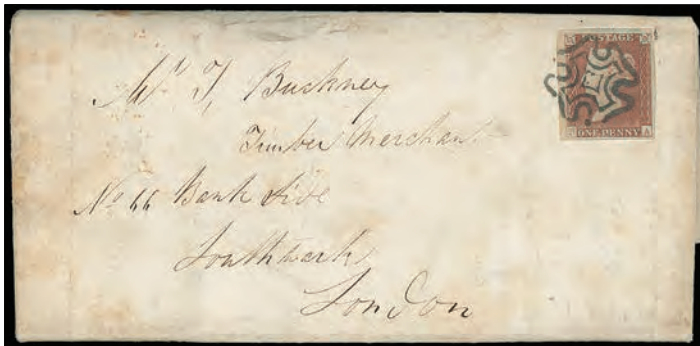 POSTAGE
ONE PENNY A
Mr T, Buckney
Timber Merchant
No 66 Bank Side
Southwark
London